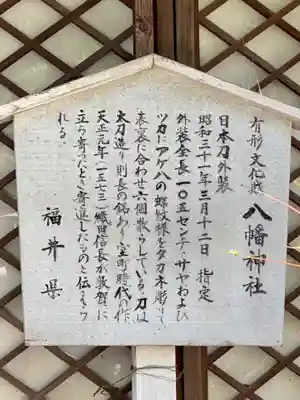 有形文化財 八幡神社
日本刀外装
昭和三十一年三月十二日 指定
外装全長一〇五センチ、サヤおよび
ツカにアゲハの蝶紋様をタガネ彫りで
表裏に合わせ六個散らしている。刀は
太刀造り則長の銘あり室町時代の作
天正元年(一五七三)織田信長が敦賀に
立ち寄ったとき寄進したものと伝えら
れる。
福井県